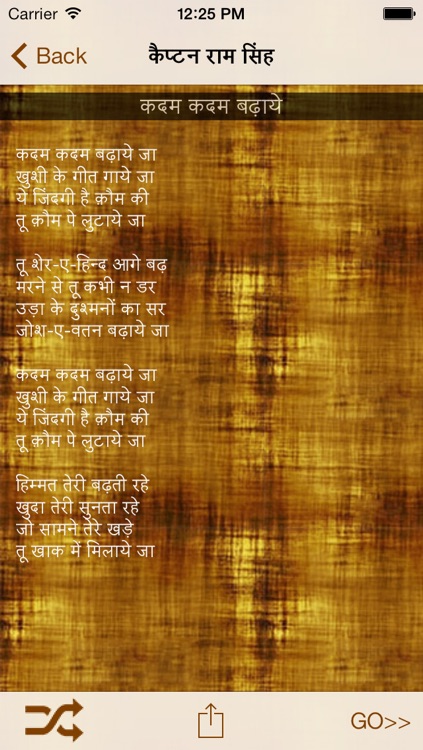 Carrier 12:25 PM
Back कैप्टन राम सिंह
कदम कदम बढ़ाये
कदम कदम बढ़ाये जा
खुशी के गीत गाये जा
ये जिंदगी है क़ौम की
तू क़ौम पे लुटाये जा
तू शेर-ए-हिन्द आगे बढ़
मरने से तू कभी न डर
उड़ा के दुश्मनों का सर
जोश-ए-वतन बढ़ाये जा
कदम कदम बढ़ाये जा
खुशी के गीत गाये जा
ये जिंदगी है क़ौम की
तू क़ौम पे लुटाये जा
हिम्मत तेरी बढ़ती रहे
खुदा तेरी सुनता रहे
जो सामने तेरे खड़े
तू खाक में मिलाये जा
GO>>